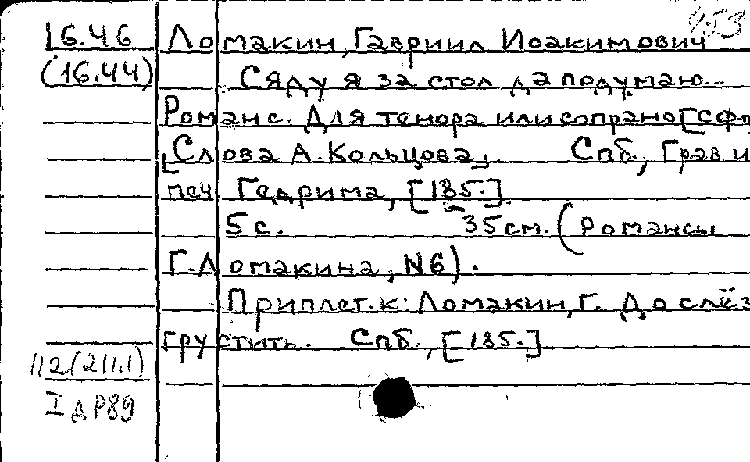 453
16.46 Ломакин, Гавриил Иоакимович
(16.44) Сяду я за стол да подумаю...
Романс. Для тенора или сопрано [с фп
[Слова А. Кольцова]. Спб., Грав и
печ Гедрима, [185.].
5 с. 35 см. (Романсы
Г. Ломакина, N6).
Приплет. к: Ломакин, Г. До слёз
грустить. Спб., [185.]
I д Р89